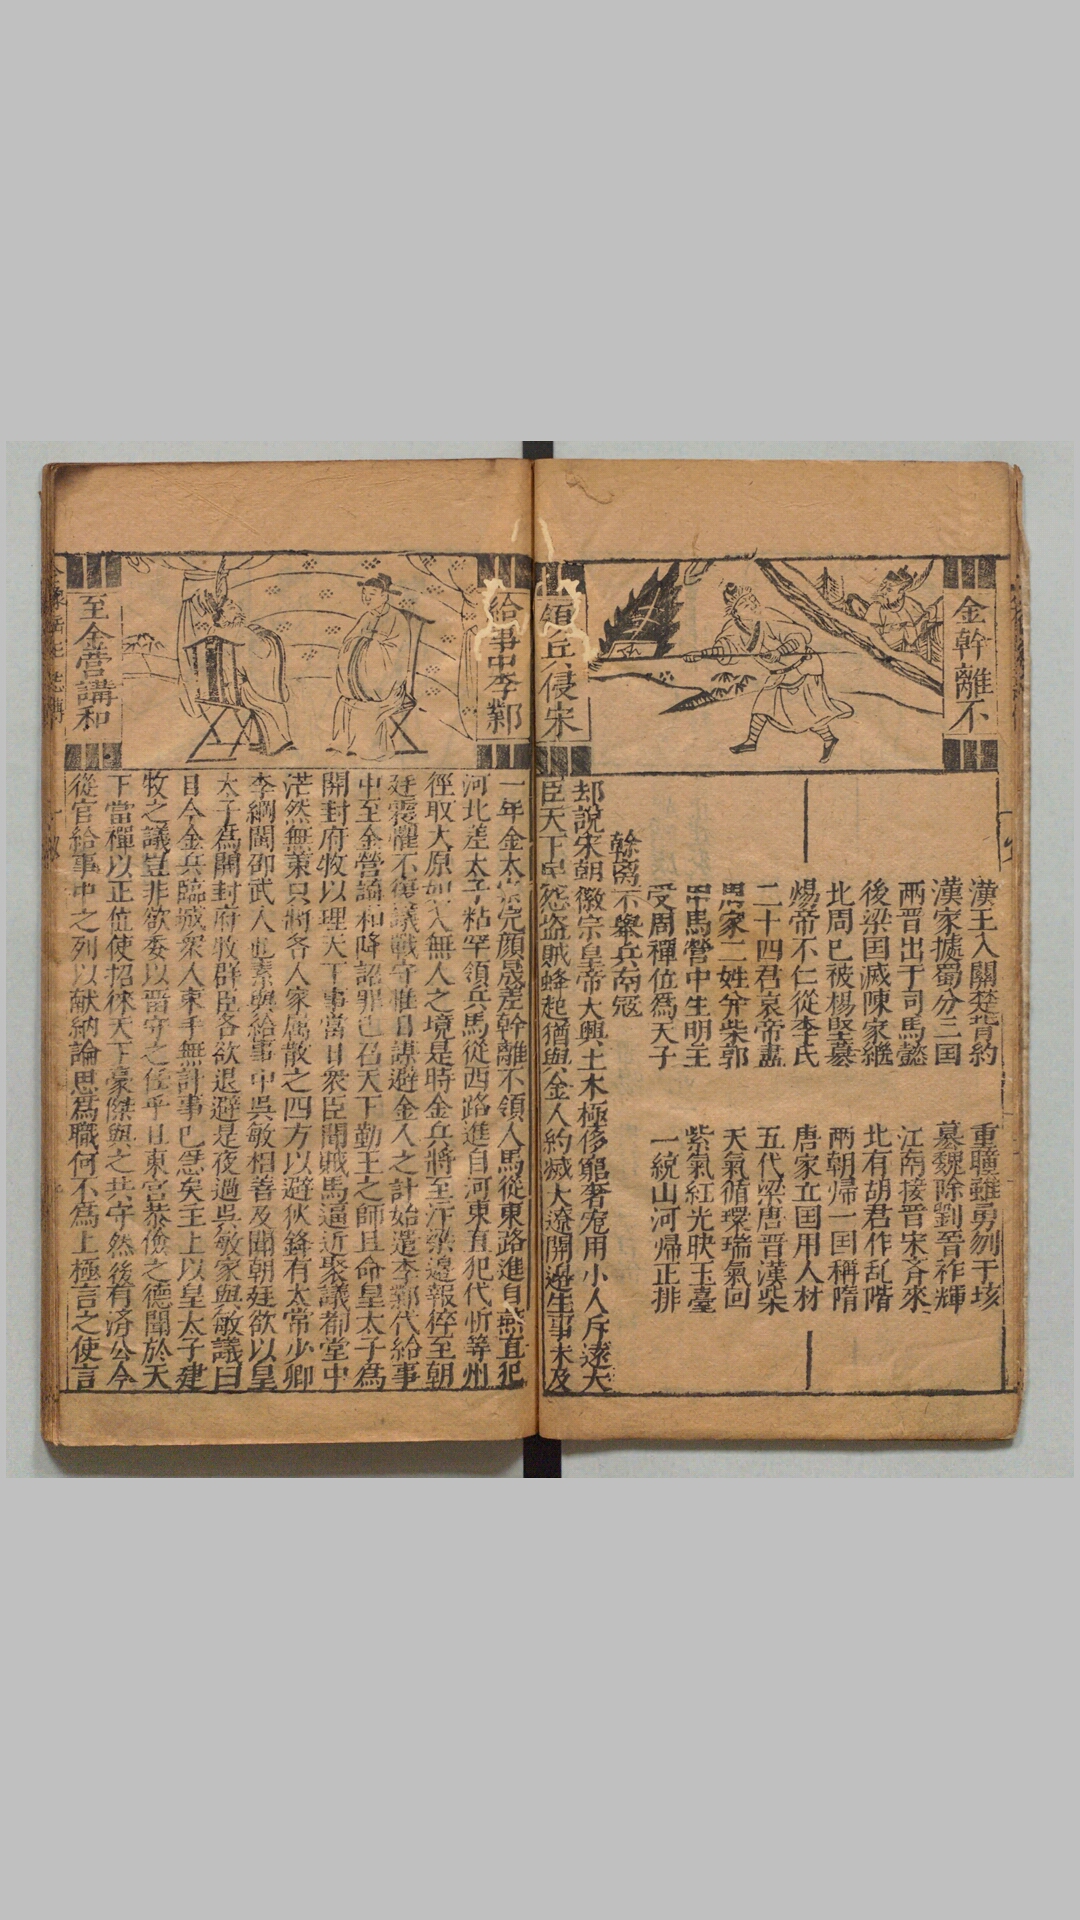 金幹離不
領兵侵宋
漢王入關楚背約 重瞳雖勇刎于垓
漢家據蜀分三国 慕魏除劉晉祚輝
兩晋出于司馬懿 江南接晋宋斉來
後梁国滅陳家繼 北有胡君作乱階
北周已被楊堅纂 兩朝歸一国稱隋
煬帝不仁從李氏 唐家立国用人材
二十四君哀帝盡 五代梁唐晋漢柴
男家二姓分柴郭 天氣循環瑞氣回
甲馬營中生明王 紫氣紅光映玉臺
受周禪位為天子 一統山河帰正排
幹离不舉兵南冦
却說宋朝徽宗皇帝大興土木極侈窮奢寵用小人斥逐大
臣天下皆怨盗賊蜂起猶與金人約滅大遼開邊生事未及
給事中李鄴
至金營講和
一年金太宗完顔晟差幹離不領人馬從東路進自燕直犯
河北差太子粘罕領兵馬從西路進自河東直犯代忻等州
徑取大原如入無人之境是時金兵將至汴梁邊報徃至朝
廷震懼不復議戰守惟日謀避金人之計始遣李鄴代給事
中至金營論和降詔罪已召天下勤王之師且命皇太子為
開封府牧以理天下事當日衆臣聞賊馬逼近聚議都堂中
茫然無策只將各人家属散之四方以避狄鋒有太常少卿
李綱聞邵武人也素與給事中吳敏相善及聞朝廷欲以皇
大子為開封府牧群臣各欲退避是夜過吳敏家與敏議曰
目今金兵臨城衆人束手無計事已急矣主上以皇太子建
牧之議豈非欲委以晋守之任乎且東宮恭儉之德聞於天
下當禪以正位使招徠天下豪傑與之共守然後有済公今
從官給事中之列以献納論思為職何不為上極言之使言